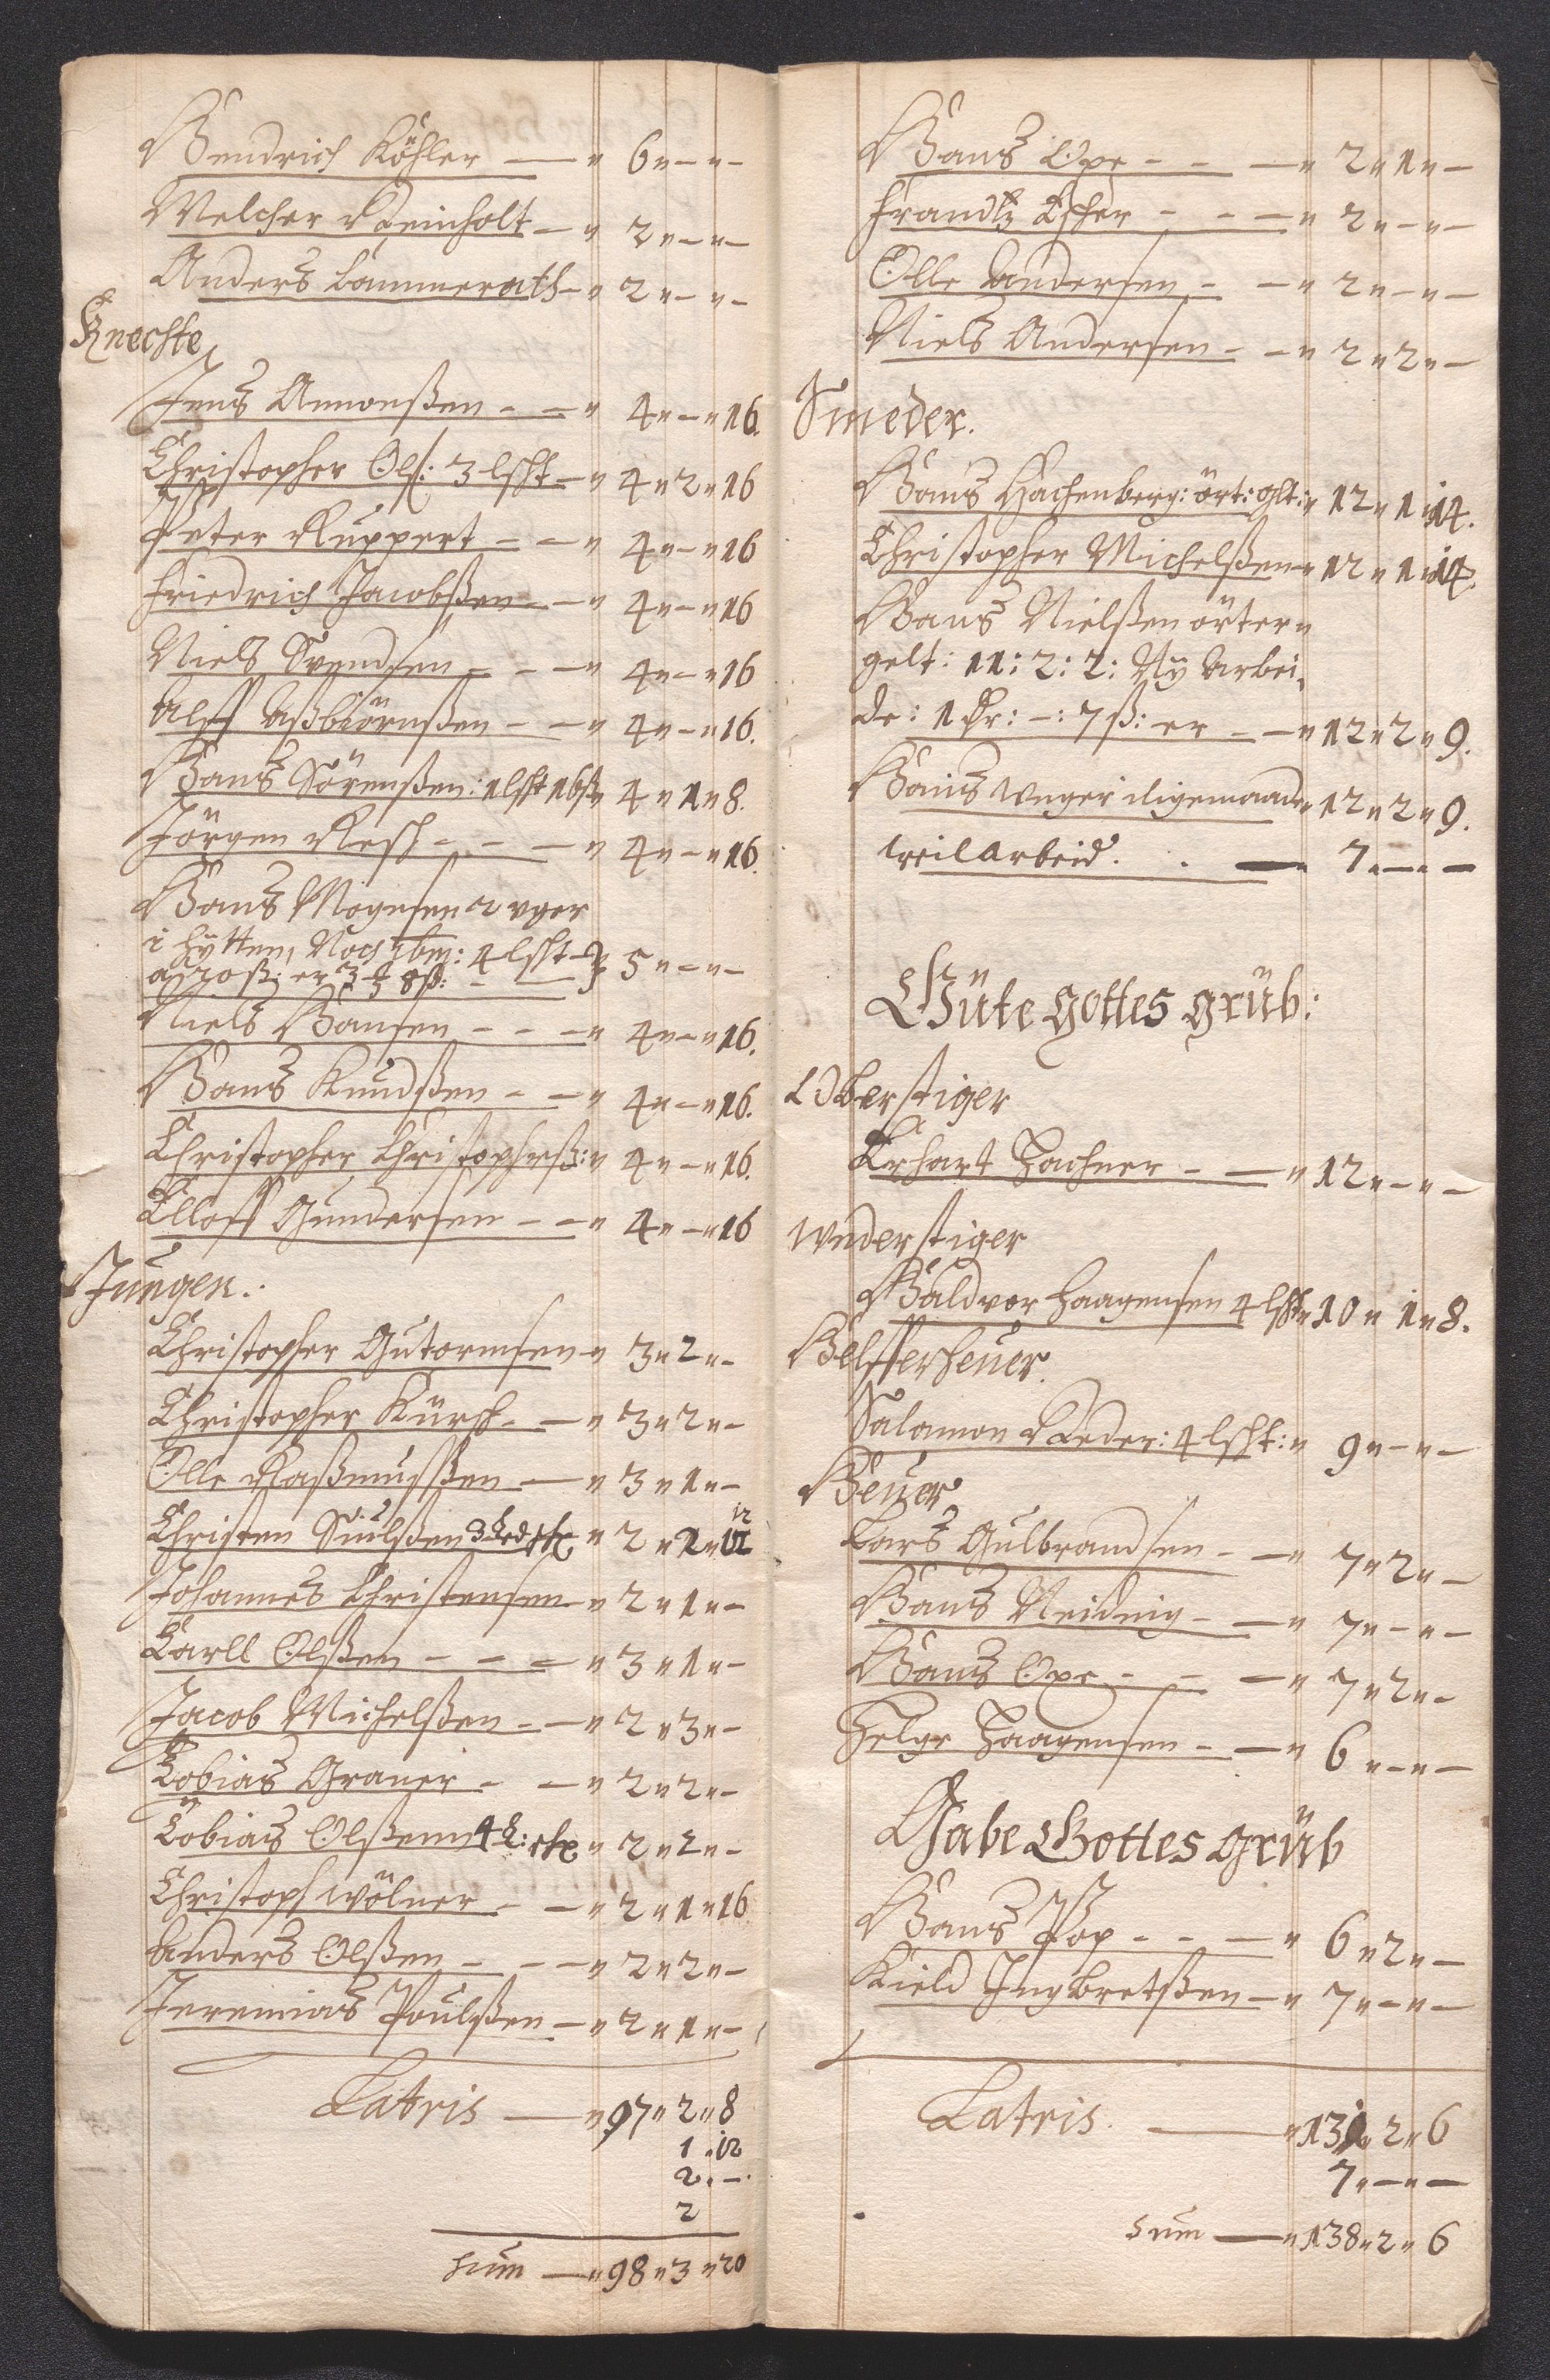 Hendrich Köhler — " 6 " – " –
Melcher Reinholt – " 2 " – " –
Anders Lammerath – " 2 " – " –
Knechte
Jens Amonßen - – " 4 " – " 16.
Christopher Ols: 3 lsht – " 4 " 2 " 16
Peter Ruppert - – " 4 " – " 16
Friedrich Jacobßen - – " 4 " – " 16
Niels Svendsen - - – " 4 " – " 16
Alff Aßbiörnßen - – " 4 " – " 16.
Hans Sörenßen: 1 lsht 16 ß " 4 " 1 " 8.
Jörgen Resch - - – " 4 " – " 16.
Hans Mogensen 2 uger
i hytten, Noch : 4 lsht
er 3 8 ß: - — } 5 " – " –
Niels Hansen - - – " 4 " – " 16.
Hans Knudßen - – " 4 " – " 16.
Christopher Christopherß: " 4 " – " 16.
Elloff Gundersen - – " 4 " – " 16
Jungen.
Christopher Gutormsen – " 3 " 2 " –
Christopher Kürsch - – " 3 " 2 " –
Olle Raßmußßen — " 3 " 1 " –
Christen Siulßen 3 " 2 " 1 " 12
Johannes Christensen – " 2 " 1 " –
Carll Olßen - - – " 3 " 1 " –
Jacob Michelßen - – " 2 " 3 " –
Tobias Graner - – " 2 " 2 " –
Tobias Olßenn 4 " 2 " 2 " –
Christoph Wölner - – " 2 " 1 " 16
Anders Olßen - - – " 2 " 2 " –
Jeremias Poulßen – " 2 " 1 " –
Latris — " 97 " 2 " 8
1 . 12
2 . –
2
Sum — " 98 " 3 " 20
Hans Oxe - - — " 2 " 1 " –
Frandtz - - – " 2 " – " –
Olle Andersen - – " 2 " – " –
Niels Andersen - – " 2 " 2 " –
Smeder.
Hans Hachenberg: ört: glt: " 12 " 1 " 14.
Christopher Michelßen – " 12 " 1 " 14.
Hans Nielßen örter "
gelt: 11: 2: 2: Ny Arbei,
de: 1 Dr: –: 7 ß: er - – " 12 " 2 " 9.
Hans Unger iligemaade " 12 " 2 " 9.
weilarbeid. . — " 7 " – " –
Güte Gottes grüb:
Oberstiger
Erhart Zachner - — " 12 " – " –
Understiger
Haldvor Haagensen 4 lsht " 10 " 1 " 8.
Helfferheuer.
Salomon Reder: 4 lsht: " 9 " – " –
Heuer
Lars Gulbrandsen - – " 7 " 2 " –
Hans Neidnig - — " 7 " – " –
Hans Oxe - - — " 7 " 2 " –
Helge Haagensen - — " 6 " – " –
Gabe Gottes grüb
Hans Pop - - — " 6 " 2 " –
Kield Ingbretßen – " 7 " – " –
Latris. — " 131 " 2 " 6
7 " – " –
Sum — " 138 " 2 " 6